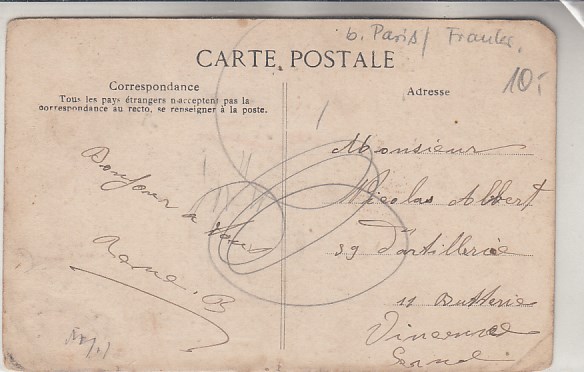 b. Paris/
10.-
CARTE POSTALE
Correspondance
Tous les pays étrangers n'acceptent pas la
correspondance au recto, se renseigner à la poste.
Adresse
Bonjour a tous
B
Monsieur
Nicolas Albert
d'artillerie
11 Batterie